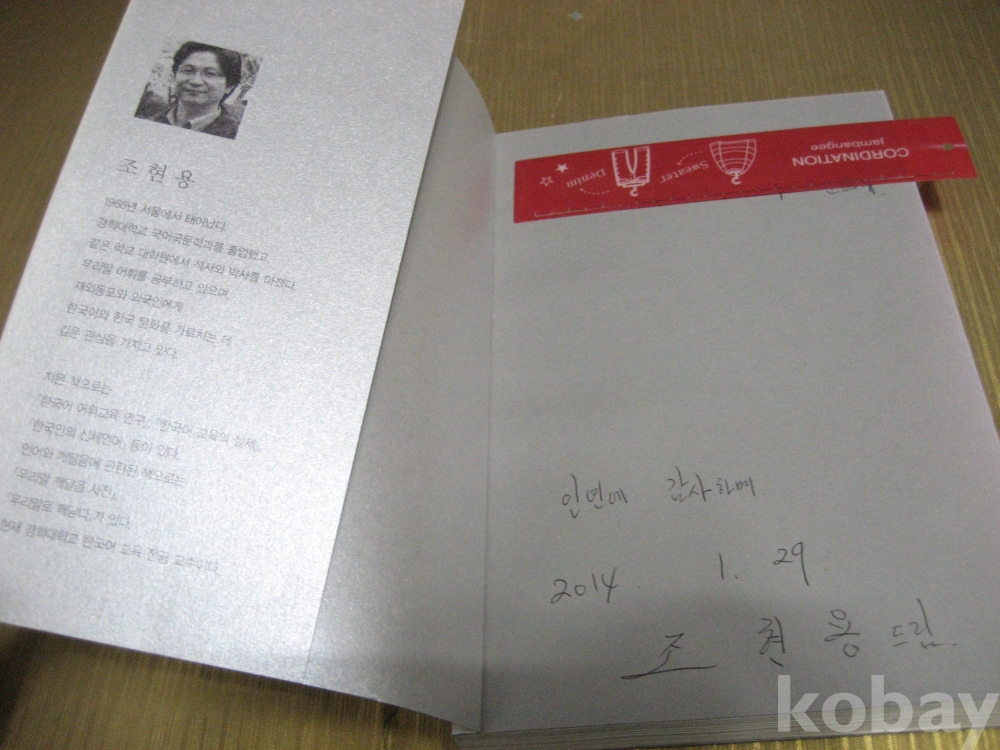 조현용
1966년 서울에서 태어났다.
경희대학교 국어국문학과를 졸업했고
같은 학교 대학원에서 석사와 박사를 마쳤다.
우리말 어휘를 공부하고 있으며,
재외동포와 외국인에게
한국어와 한국 문화를 가르치는 데
깊은 관심을 가지고 있다.
지은 책으로는
『한국어 어휘교육 연구』, 『한국어 교육의 실제』,
『한국인의 신체언어』 등이 있다.
언어와 깨달음에 관련된 책으로는
『우리말 깨달음 사전』,
『우리말로 깨닫다』가 있다.
현재 경희대학교 한국어 교육 전공 교수이다.
CORDINATION
jambangee
Sweater
Denim
인연에 감사하며
2014. 1. 29
조현용 드림
kobay